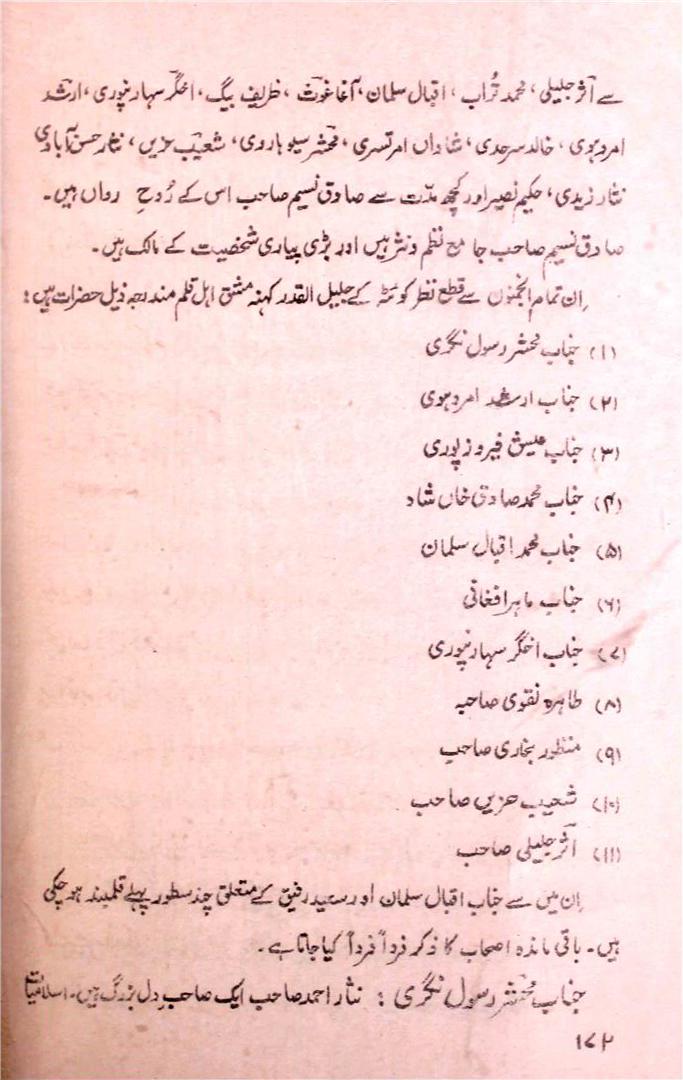 سے آثر جلیلی، محمد تُراب، اقبال سلمان، آغا غوث، ظریف بیگ، اخگر سہارنپوری، ارشد
امروہوی، خالد سرحدی، شاداں امرتسری، محشر سیوہاروی، شعیب حزیں، نثار حسن آبادی
نثار زیدی، حکیم نصیر اور کچھ مدّت سے صادق نسیم صاحب اس کے رُوحِ رواں ہیں۔
صادق نسیم صاحب جامع نظم و نثر ہیں اور بڑی پیاری شخصیت کے مالک ہیں۔
اِن تمام انجمنوں سے قطع نظر کوئٹہ کے جلیل القدر کہنہ مشق اہل قلم مندرجہ ذیل حضرات ہیں:
(۱) جناب محشر رسول نگری
(۲) جناب ارشد امروہوی
(۳) جناب عیش فیروزپوری
(۴) جناب محمد صادق خاں شاد
(۵) جناب محمد اقبال سلمان
(۶) جناب ماہر افغانی
(۷) جناب اخگر سہارنپوری
(۸) طاہرہ نقوی صاحبہ
(۹) منظور بخاری صاحب
(۱۰) شعیب حزیں صاحب
(۱۱) آثر جلیلی صاحب
اِن میں سے جناب اقبال سلمان اور سعید رفیق کے متعلق چند سطور پہلے قلمبند ہو چکی
ہیں۔ باقی ماندہ اصحاب کا ذکر فرداً فرداً کیا جاتا ہے۔
جناب محشر رسول نگری: نثار احمد صاحب ایک صاحبِ دل بزرگ ہیں۔ اسلامیات
۱۷۲